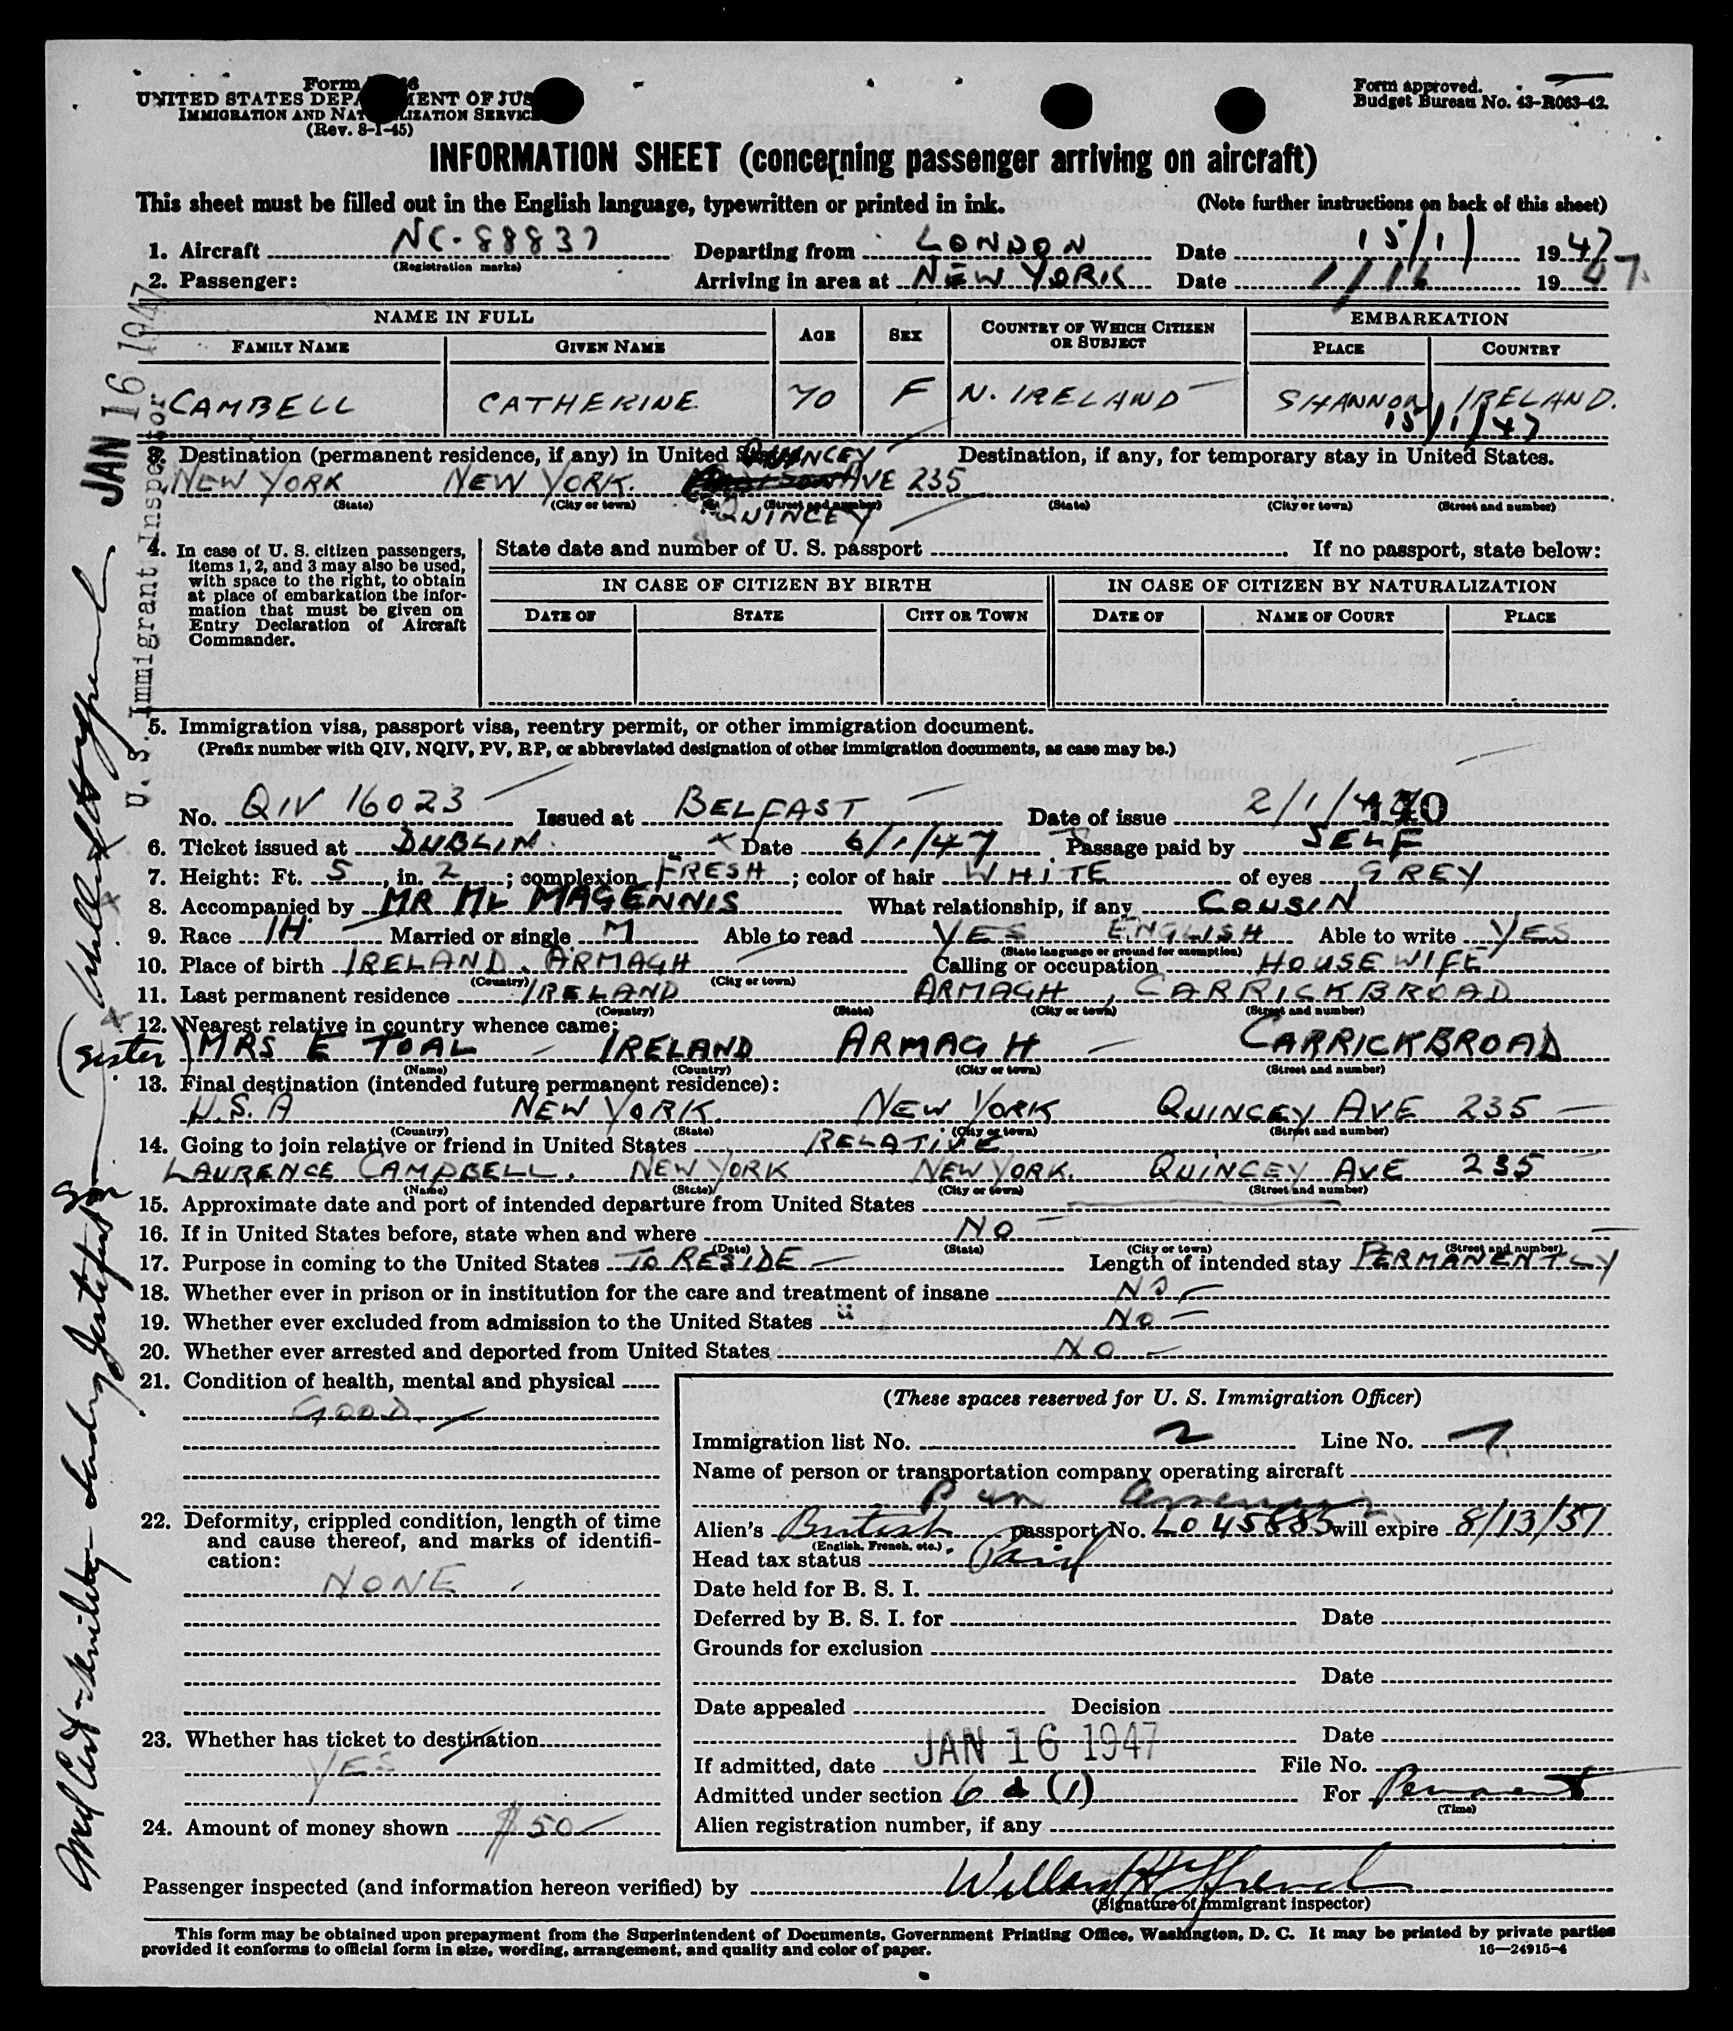 Form
UNITED STATES DEPARTMENT OF JUS
IMMIGRATION AND NATURALIZATION SERVICE
(Rev. 8-1-45)
Form approved.
Budget Bureau No. 43-R063-42.
INFORMATION SHEET (concerning passenger arriving on aircraft)
This sheet must be filled out in the English language, typewritten or printed in ink. (Note further instructions on back of this sheet)
1. Aircraft NC-88837 Departing from LONDON Date 15/1/ 1947
(Registration marks)
2. Passenger: Arriving in area at NEW YORK Date 1/16 1947.
NAME IN FULL AGE SEX COUNTRY OF WHICH CITIZEN OR SUBJECT EMBARKATION
FAMILY NAME GIVEN NAME PLACE COUNTRY
CAMBELL CATHERINE 70 F N. IRELAND SHANNON IRELAND.
15/1/47
3. Destination (permanent residence, if any) in United States QUINCEY Destination, if any, for temporary stay in United States.
NEW YORK NEW YORK. AVE 235
(State) (City or town) (Street and number) (State) (City or town) (Street and number)
QUINCEY
4. In case of U. S. citizen passengers, items 1, 2, and 3 may also be used, with space to the right, to obtain at place of embarkation the information that must be given on Entry Declaration of Aircraft Commander.
State date and number of U. S. passport If no passport, state below:
IN CASE OF CITIZEN BY BIRTH IN CASE OF CITIZEN BY NATURALIZATION
DATE OF STATE CITY OR TOWN DATE OF NAME OF COURT PLACE
5. Immigration visa, passport visa, reentry permit, or other immigration document.
(Prefix number with QIV, NQIV, PV, RP, or abbreviated designation of other immigration documents, as case may be.)
No. QIV 16023 Issued at BELFAST Date of issue 2/1/47
6. Ticket issued at DUBLIN. Date 6/1/47 Passage paid by SELF
7. Height: Ft. 5, in. 2; complexion FRESH; color of hair WHITE of eyes GREY
8. Accompanied by MR ML MAGENNIS What relationship, if any COUSIN
9. Race IH Married or single M Able to read YES ENGLISH Able to write YES
(State language or ground for exemption)
10. Place of birth IRELAND, ARMAGH Calling or occupation HOUSEWIFE
(Country) (City or town)
11. Last permanent residence IRELAND ARMAGH, CARRICKBROAD
(Country) (State) (City or town) (Street and number)
12. Nearest relative in country whence came:
(Sister) MRS E TOAL - IRELAND ARMAGH - CARRICKBROAD
(Name) (Country) (City or town) (Street and number)
13. Final destination (intended future permanent residence):
U.S.A NEW YORK. NEW YORK QUINCEY AVE 235
(Country) (State) (City or town) (Street and number)
14. Going to join relative or friend in United States RELATIVE
LAURENCE CAMPBELL. NEW YORK NEW YORK. QUINCEY AVE 235
(Name) (State) (City or town) (Street and number)
Son
15. Approximate date and port of intended departure from United States
16. If in United States before, state when and where NO
(Date) (State) (City or town) (Street and number)
17. Purpose in coming to the United States TO RESIDE Length of intended stay PERMANENTLY
18. Whether ever in prison or in institution for the care and treatment of insane NO
19. Whether ever excluded from admission to the United States NO
20. Whether ever arrested and deported from United States NO
21. Condition of health, mental and physical
GOOD
22. Deformity, crippled condition, length of time and cause thereof, and marks of identification:
NONE
23. Whether has ticket to destination
YES
24. Amount of money shown $50
(These spaces reserved for U. S. Immigration Officer)
Immigration list No. 2 Line No. 7
Name of person or transportation company operating aircraft
Pan American
Alien's British passport No. LO 45883 will expire 8/13/51
(English, French, etc.)
Head tax status Paid
Date held for B. S. I.
Deferred by B. S. I. for Date
Grounds for exclusion
Date
Date appealed Decision
Date
If admitted, date JAN 16 1947 File No.
Admitted under section 6 d (1) For Permanent
(Time)
Alien registration number, if any
Passenger inspected (and information hereon verified) by
(Signature of immigrant inspector)
This form may be obtained upon prepayment from the Superintendent of Documents, Government Printing Office, Washington, D. C. It may be printed by private parties
provided it conforms to official form in size, wording, arrangement, and quality and color of paper. 16—24915-4
JAN 16 1947
U. S. Immigrant Inspector
Med Cert - Senility -